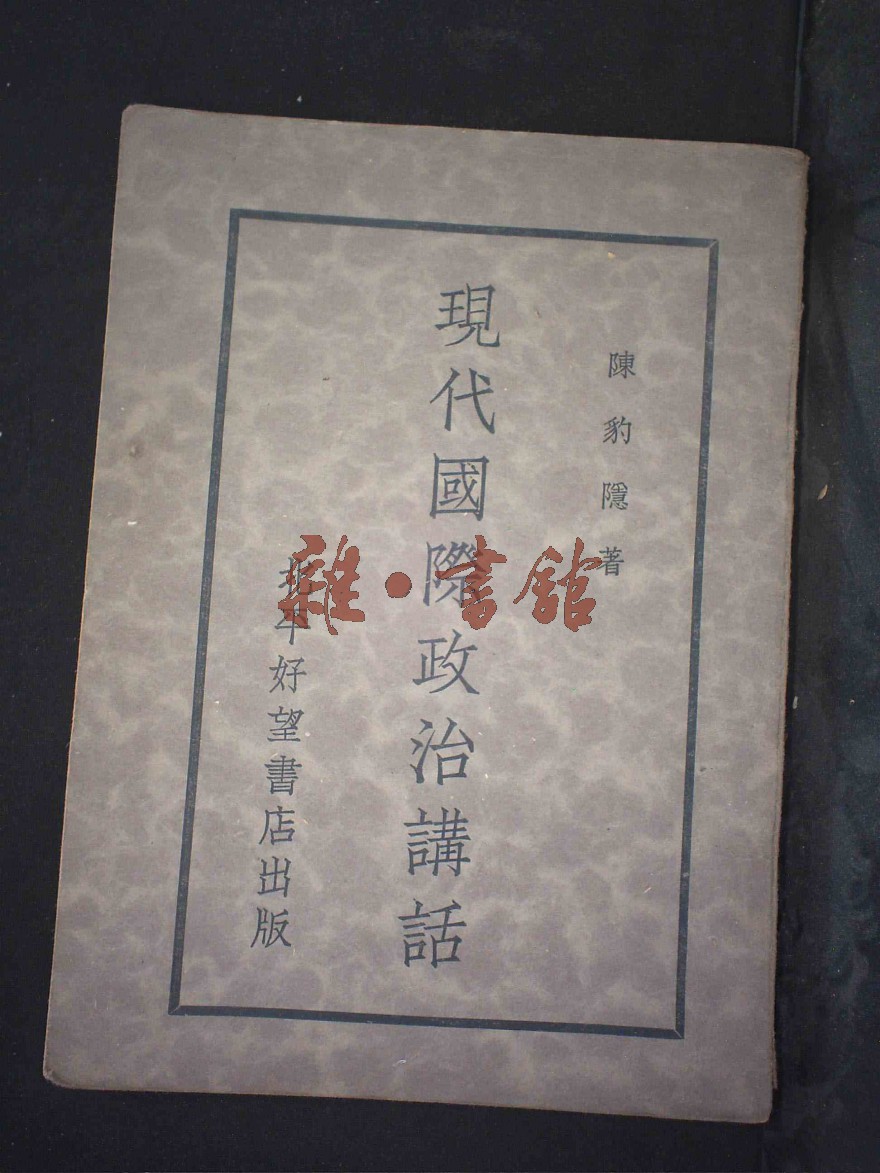 陳豹隱著
現代國際政治講話
北平好望書店出版
雜·書館